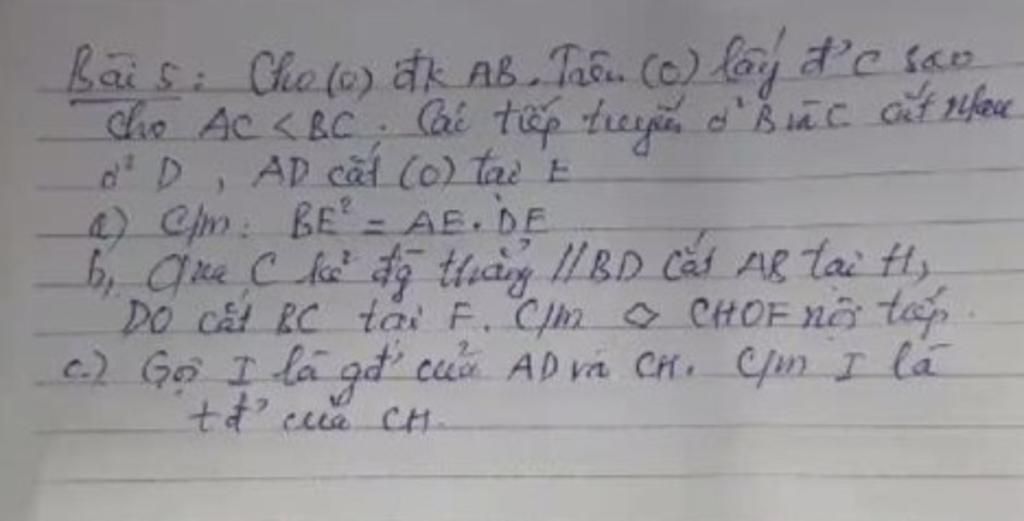 Bài 5: Cho (O) đk AB. Trên (O) lấy đ' C sao
cho AC < BC. Các tiếp tuyến ở B và C cắt nhau
ở D, AD cắt (O) tại E
a) C/m: BE² = AE.DE
b, Qua C kẻ đg thẳng // BD cắt AB tại H,
DO cắt BC tại F. C/m ◇ CHOF nội tiếp.
c.) Gọi I là gđ' của AD và CH. C/m I là
tđ' của CH.